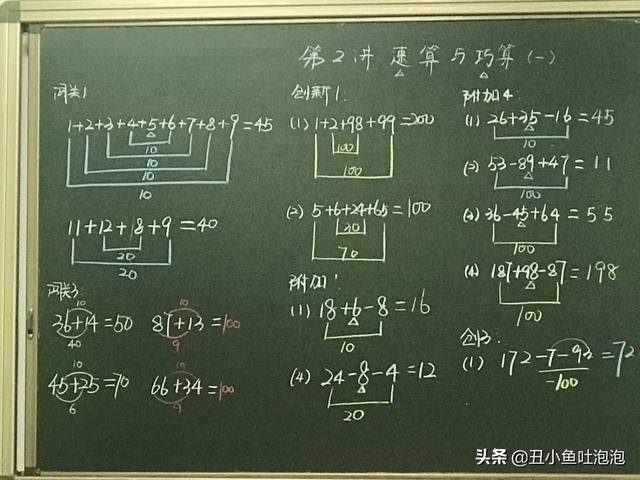 第2讲 速算与巧算(一)
闯关1
1+2+3+4+5+6+7+8+9=45
10
10
10
10
11+12+8+9=40
20
20
闯关3:
10
36+14=50
40
10
87+13=100
9
10
45+25=70
6
10
66+34=100
9
创新1:
(1) 1+2+98+99=200
100
100
(2) 5+6+24+65=100
30
70
附加1:
(1) 18+6-8=16
10
(4) 24-8-4=12
20
附加4:
(1) 26+35-16=45
10
(2) 53-89+47=11
100
(3) 36-45+64=55
100
(4) 187+98-87=198
100
创3:
(1) 172-7-93=72
-100
头条 @丑小鱼吐泡泡